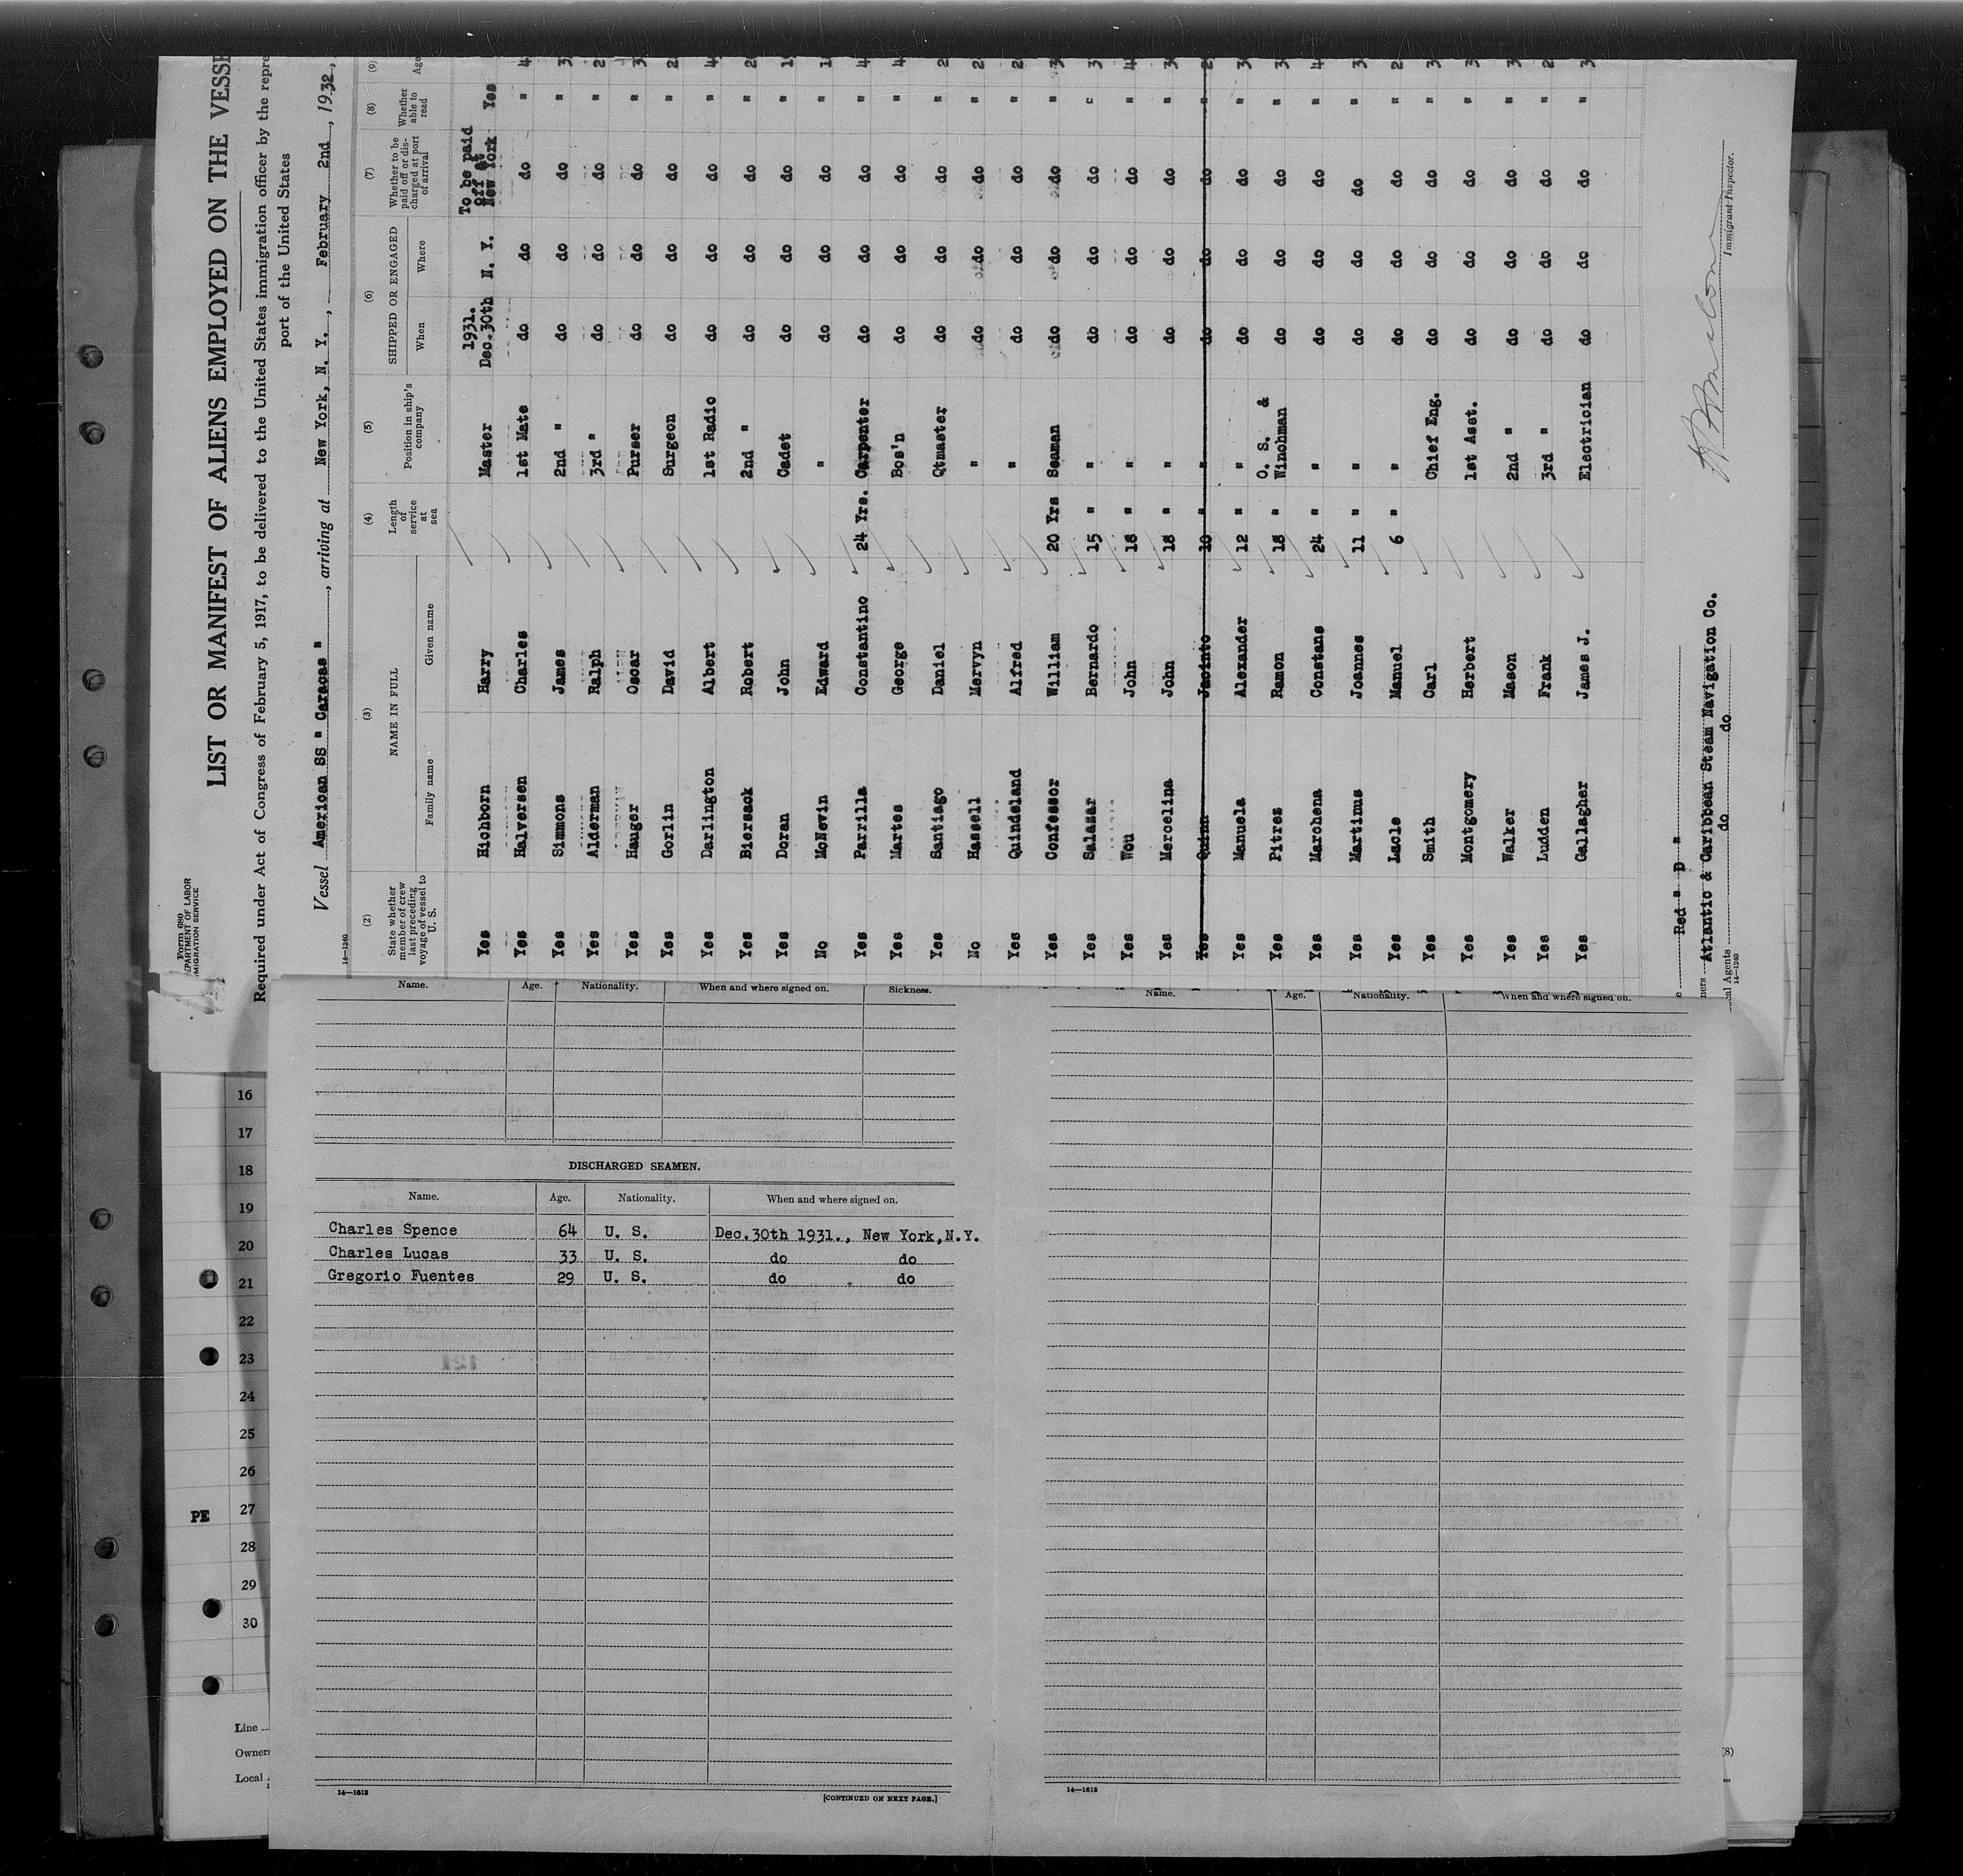 Form 680
DEPARTMENT OF LABOR
IMMIGRATION SERVICE
LIST OR MANIFEST OF ALIENS EMPLOYED ON THE
Required under Act of Congress of February 5, 1917, to be delivered to the United States immigration officer by the
port of the United States
Vessel American SS " Caracas ", arriving at New York, N. Y., February 2nd, 1932,
14—1240
(2) (3) (4) (5) (6) (7) (8) (9)
State whether member of crew last preceding voyage of vessel to U. S. NAME IN FULL Length of service at sea Position in ship's company SHIPPED OR ENGAGED Whether to be paid off or discharged at port of arrival Whether able to read Age
Family name Given name When Where
Yes Hichborn Harry Master 1931. Dec.30th N. Y. To be paid off at New York Yes
Yes Halversen Charles 1st Mate do do do "
Yes Simmons James 2nd " do do do "
Yes Alderman Ralph 3rd " do do do "
Yes Hauger Oscar Purser do do do "
Yes Gorlin David Surgeon do do do "
Yes Darlington Albert 1st Radio do do do "
Yes Biersack Robert 2nd " do do do "
Yes Doran John Cadet do do do "
No McNevin Edward " do do do "
Yes Parrilla Constantino 24 Yrs. Carpenter do do do "
Yes Martes George Bos'n do do do "
Yes Santiago Daniel Qtmaster do do do "
No Hassell Mervyn " do do do "
Yes Quindeland Alfred " do do do "
Yes Confessor William 20 Yrs Seaman do do do "
Yes Salazar Bernardo 15 " " do do do "
Yes Wou John 18 " " do do do "
Yes Mercelina John 18 " " do do do "
Yes Quinn Jacinto 10 " " do do do "
Yes Manuela Alexander 12 " " do do do "
Yes Pitrez Ramon 18 " O. S. & Winchman do do do "
Yes Marchena Constans 24 " " do do do "
Yes Martinus Joannes 11 " " do do do "
Yes Lacle Manuel 6 " " do do do "
Yes Smith Carl Chief Eng. do do do "
Yes Montgomery Herbert 1st Asst. do do do "
Yes Walker Mason 2nd " do do do "
Yes Ludden Frank 3rd " do do do "
Yes Gallagher James J. Electrician do do do "
Red " D "
Atlantic & Caribbean Steam Navigation Co.
Agents do do
14—1240
Immigrant Inspector.
Name. Age. Nationality. When and where signed on. Sickness.
DISCHARGED SEAMEN.
Name. Age. Nationality. When and where signed on.
Charles Spence 64 U. S. Dec.30th 1931., New York,N.Y.
Charles Lucas 33 U. S. do do
Gregorio Fuentes 29 U. S. do do
14—1613
[CONTINUED ON NEXT PAGE.]
Name. Age. Nationality. When and where signed on.
14—1613
16
17
18
19
20
21
22
23
24
25
26
27
28
29
30
PE
Line
Owners
Local
(8)